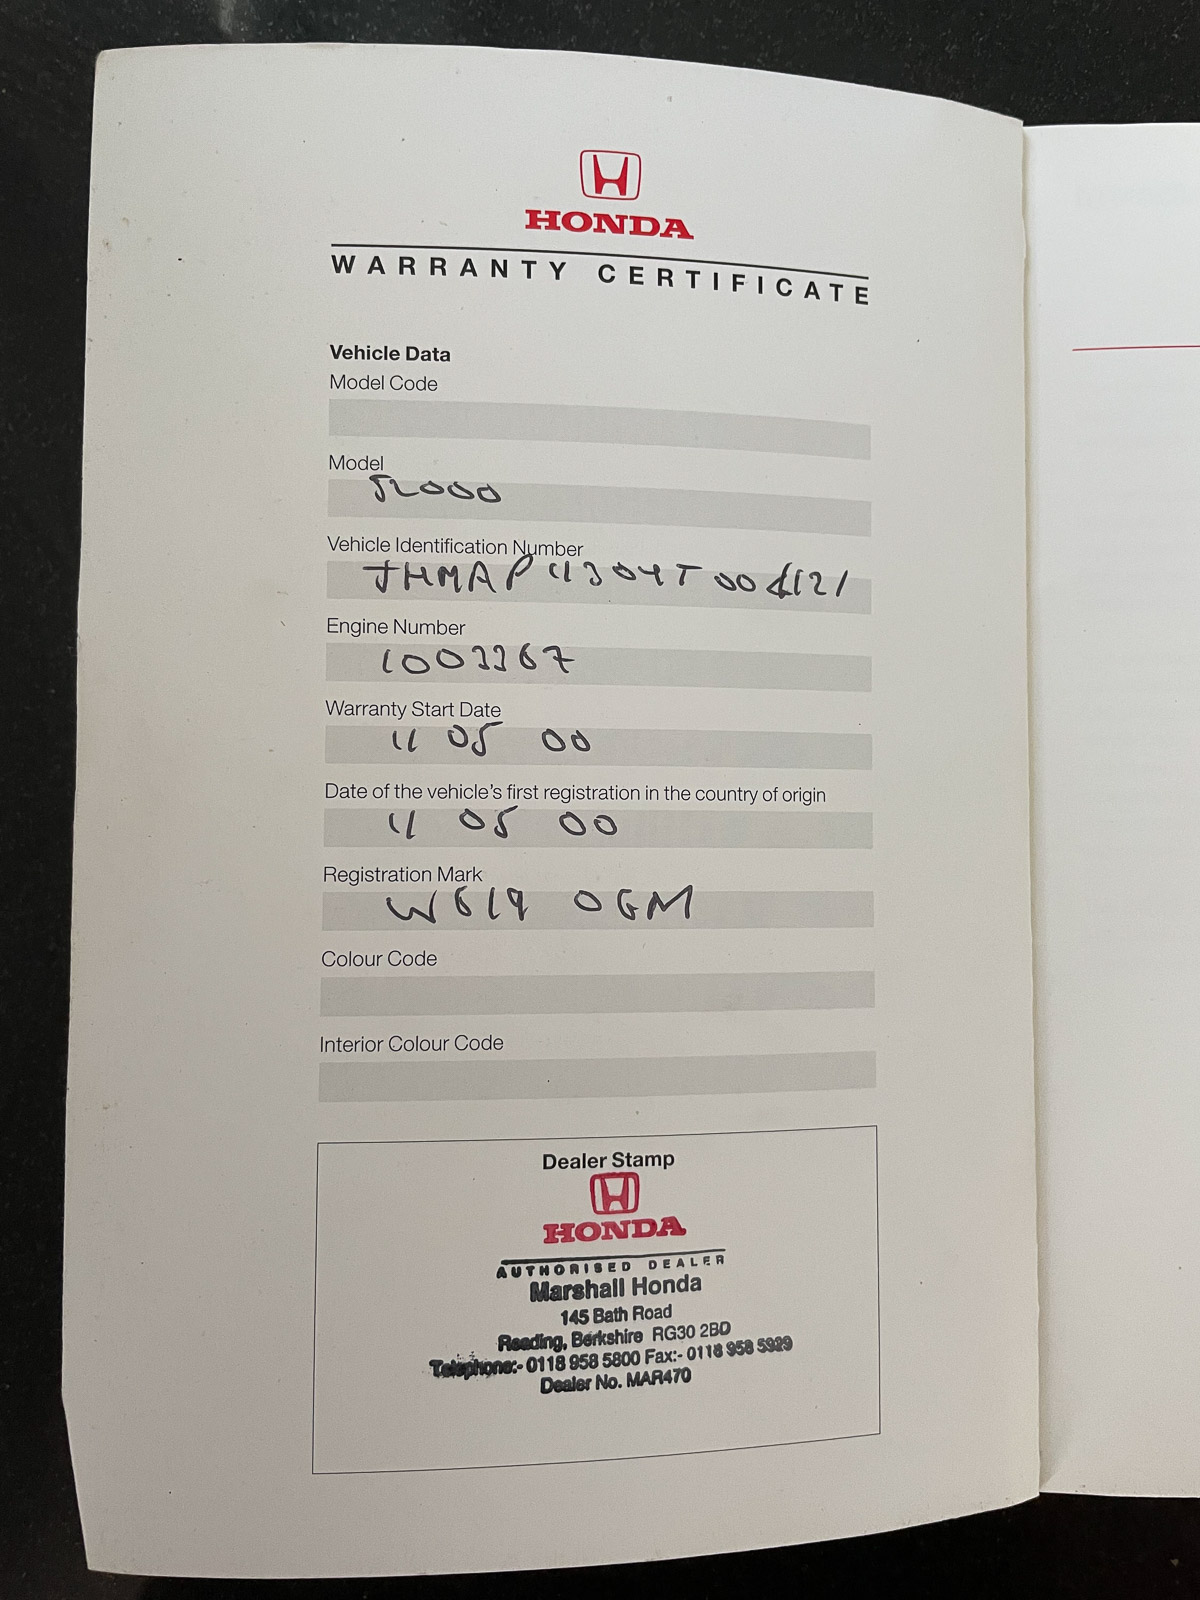 HONDA
WARRANTY CERTIFICATE
Vehicle Data
Model Code
Model
S2000
Vehicle Identification Number
Engine Number
1003367
Warranty Start Date
11 05 00
Date of the vehicle's first registration in the country of origin
11 05 00
Registration Mark
W619 OGM
Colour Code
Interior Colour Code
Dealer Stamp
HONDA
AUTHORISED DEALER
Marshall Honda
145 Bath Road
Reading, Berkshire RG30 2BD
Telephone:- 0118 958 5800 Fax:- 0118 958 5929
Dealer No. MAR470